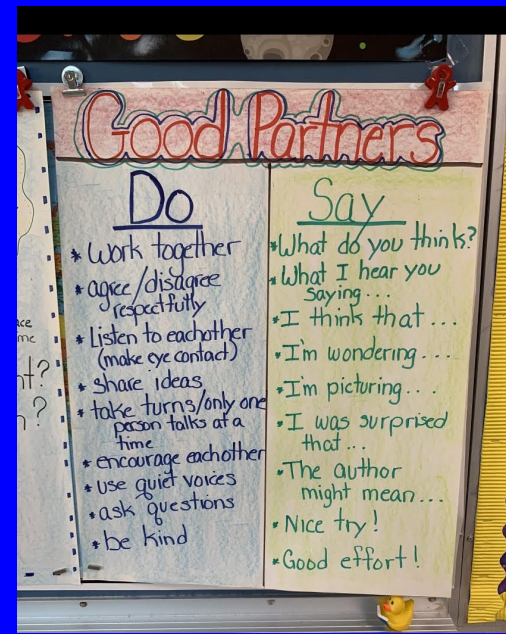 Good Partners
Do
* work together
* agree/disagree
respectfully
* Listen to eachother
(make eye contact)
* share ideas
* take turns/only one
person talks at a
time
* encourage eachother
* use quiet voices
* ask questions
* be kind
Say
* What do you think?
* What I hear you
saying...
* I think that...
* I'm wondering...
* I'm picturing...
* I was surprised
that...
* The author
might mean...
* Nice try!
* Good effort!